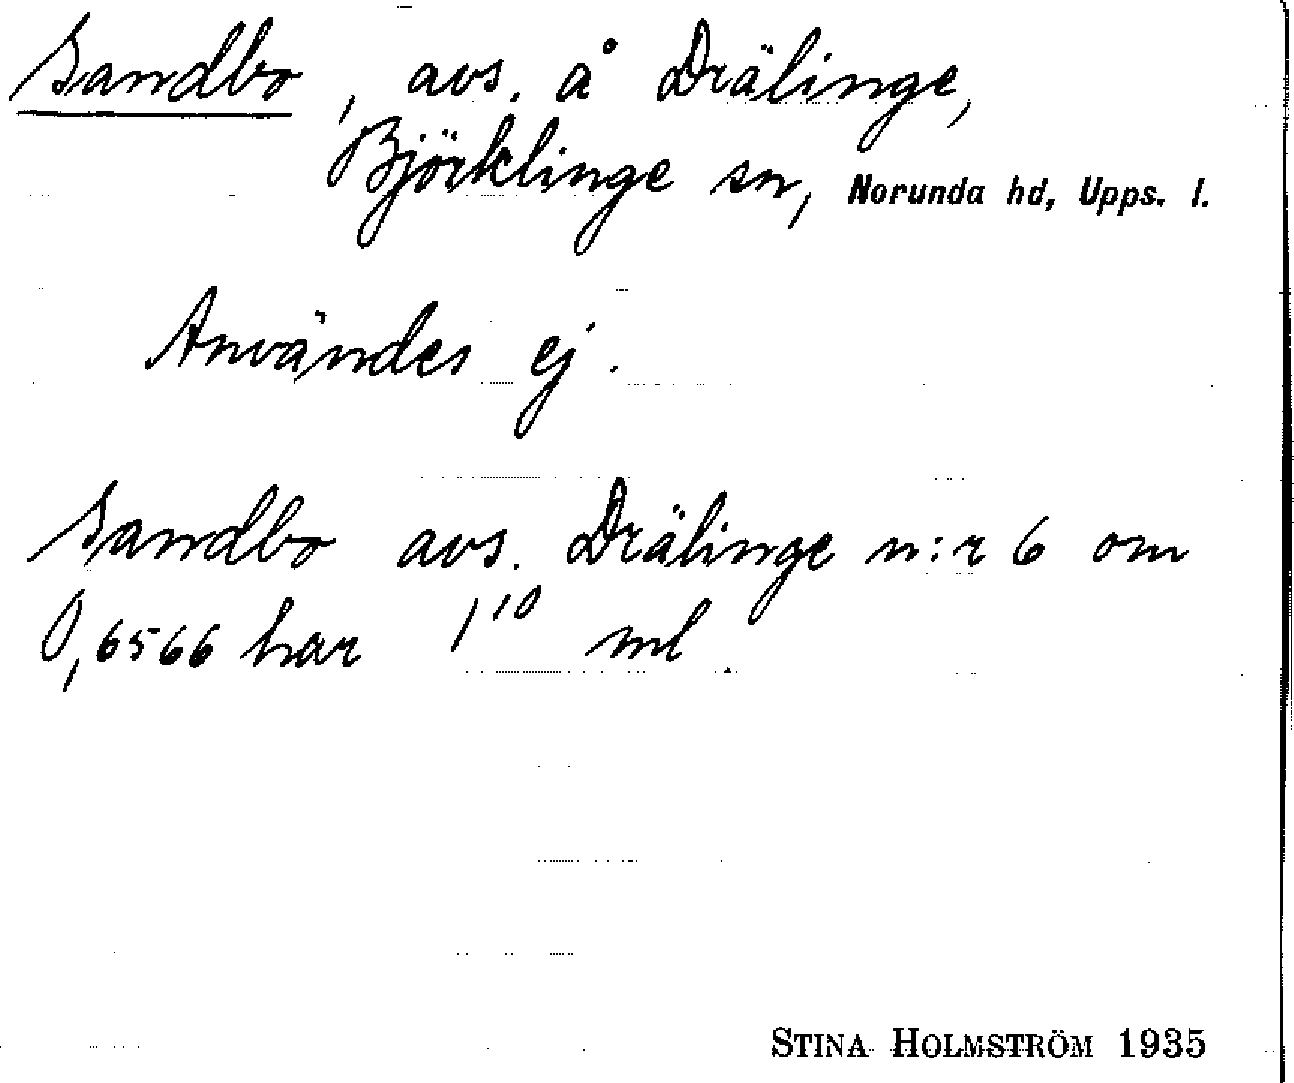 Sandbo, avs. å Drälinge,
Björklinge sn, Norunda hd, Upps. l.
Användes ej.
Sandbo avs. Drälinge n:r 6 om
0,6566 har 1¹⁰ ml.
STINA HOLMSTRÖM 1935